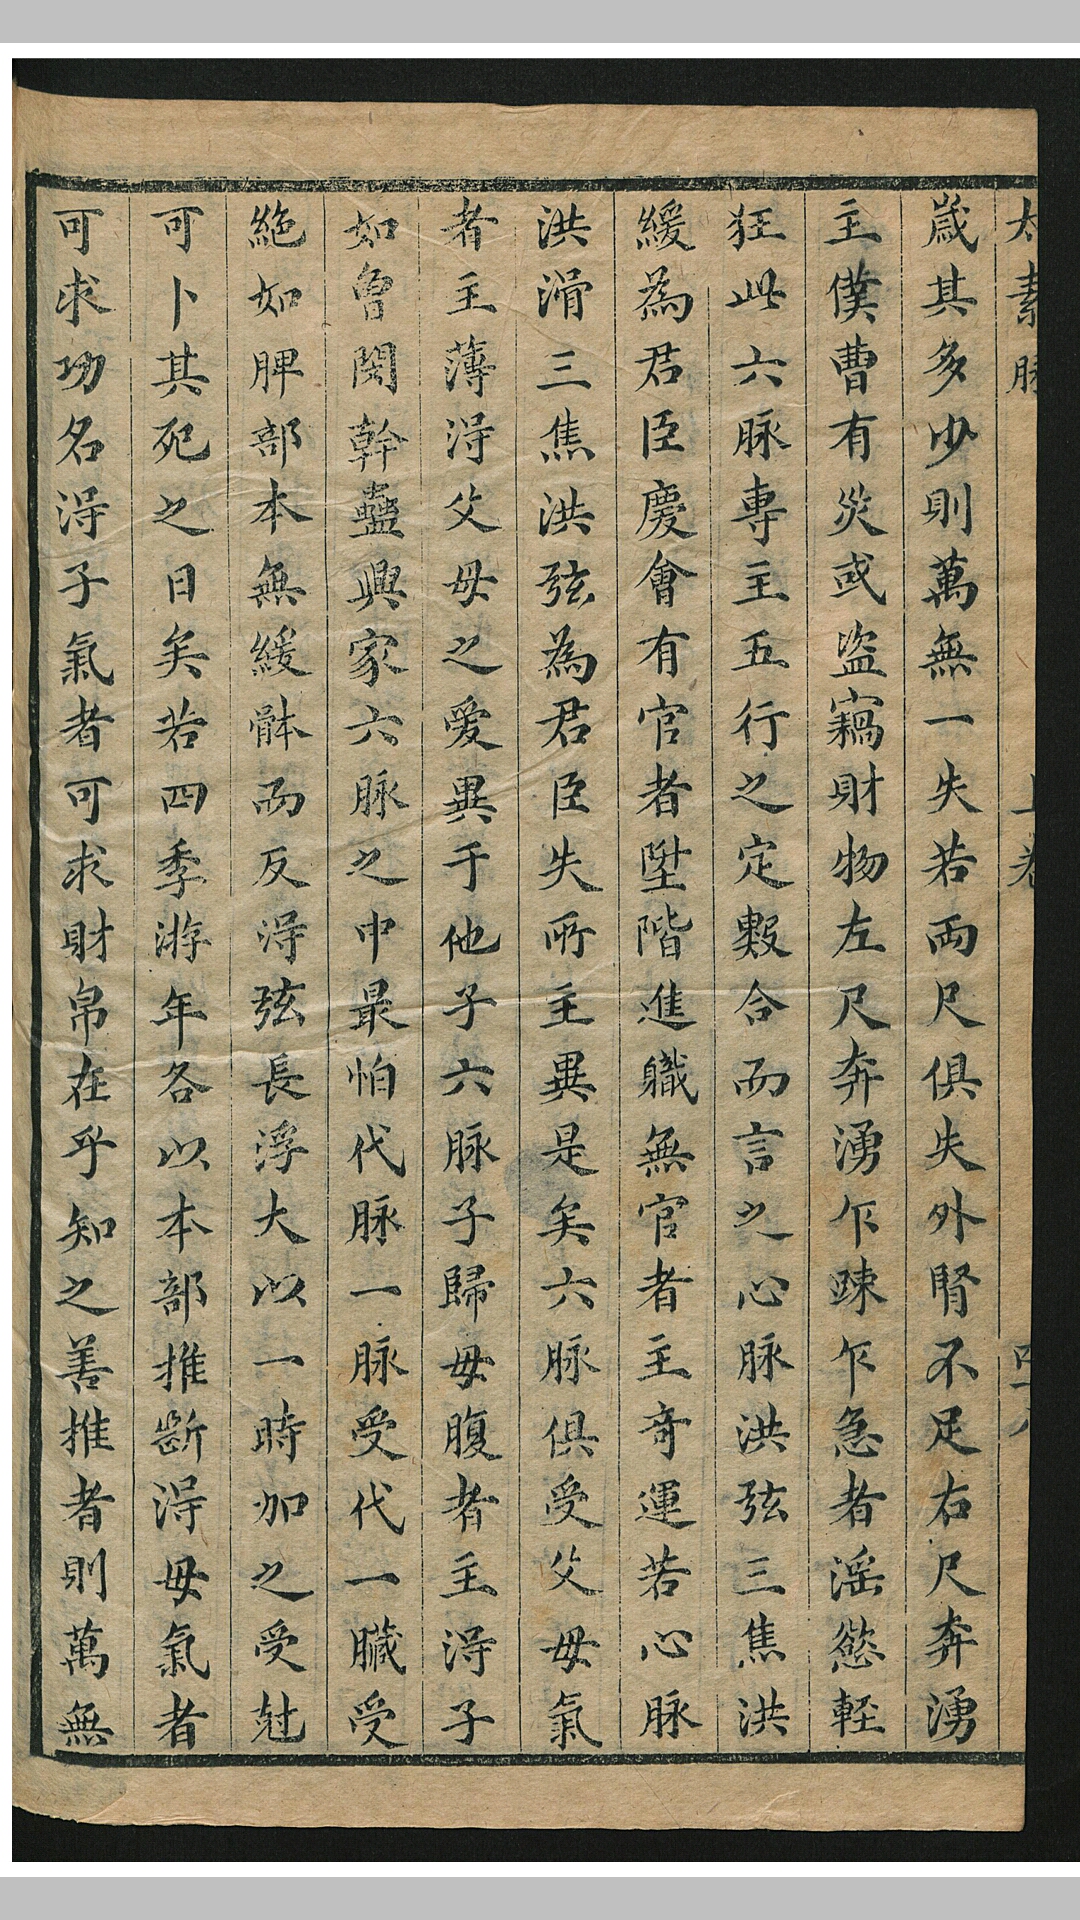 太素脉 上卷
歲其多少則萬無一失若兩尺俱失外腎不足右尺奔湧
主僕曹有災或盜竊財物左尺奔湧乍踈乍急者淫慾輕
狂此六脉專主五行之定數合而言之心脉洪弦三焦洪
緩為君臣慶會有官者陞階進職無官者主奇運若心脉
洪滑三焦洪弦為君臣失所主異是矣六脉俱受父母氣
者主薄淂父母之愛異于他子六脉子歸母腹者主淂子
如曾閔幹蠱興家六脉之中最怕代脉一脉受代一臟受
絶如脾部本無緩骵而反淂弦長浮大以一時加之受尅
可卜其死之日矣若四季游年各以本部推断淂母氣者
可求功名淂子氣者可求財帛在乎知之善推者則萬無